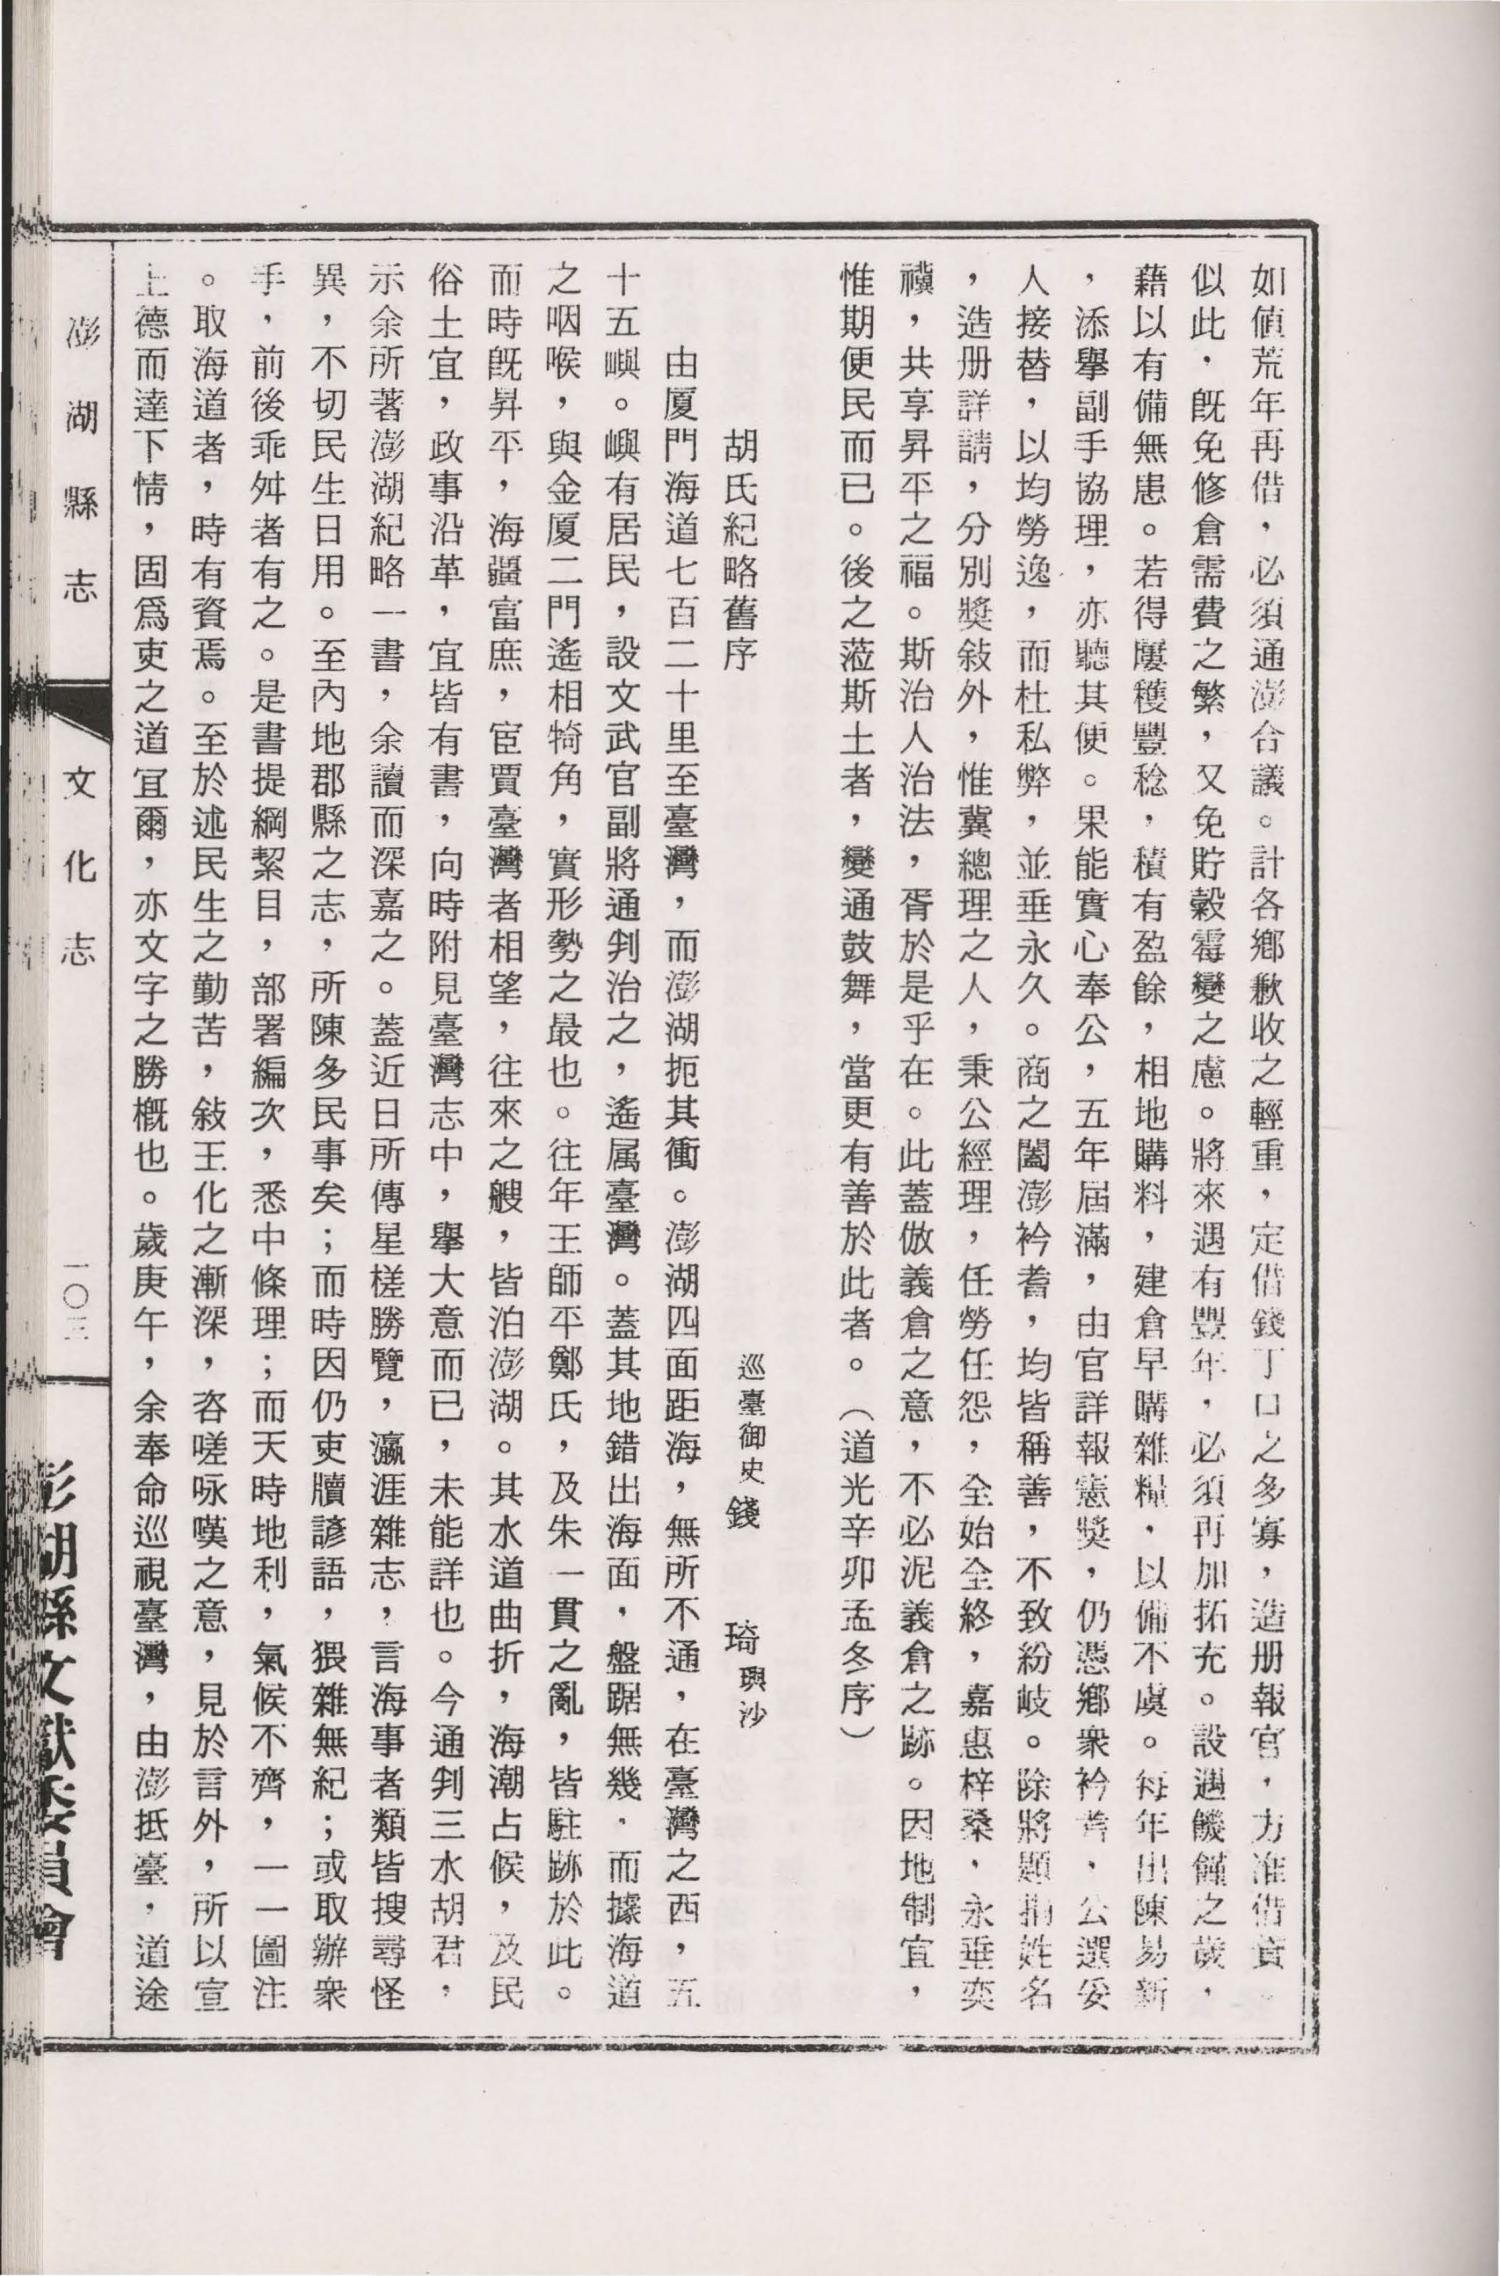 如值荒年再借，必須通澎合議。計各鄉歉收之輕重，定借錢丁口之多寡，造册報官，方准借貸。
似此，既免修倉需費之繁，又免貯穀霉變之慮。將來遇有豐年，必須再加拓充。設遇饑饉之歲，
藉以有備無患。若得屢穫豐稔，積有盈餘，相地購料，建倉早購雜糧，以備不虞。每年出陳易新
，添擧副手協理，亦聽其便。果能實心奉公，五年屆滿，由官詳報憲獎，仍憑鄉衆衿耆，公選妥
人接替，以均勞逸，而杜私弊，並垂永久。商之闔澎衿耆，均皆稱善，不致紛岐。除將題捐姓名
，造册詳請，分別獎敍外，惟冀總理之人，秉公經理，任勞任怨，全始全終，嘉惠梓桑，永垂奕
禩，共享昇平之福。斯治人治法，胥於是乎在。此蓋倣義倉之意，不必泥義倉之跡。因地制宜，
惟期便民而已。後之蒞斯土者，變通鼓舞，當更有善於此者。（道光辛卯孟冬序）
胡氏紀略舊序　巡臺御史錢　琦璵沙
由厦門海道七百二十里至臺灣，而澎湖扼其衝。澎湖四面距海，無所不通，在臺灣之西，五
十五嶼。嶼有居民，設文武官副將通判治之，遙属臺灣。蓋其地錯出海面，盤踞無幾，而據海道
之咽喉，與金厦二門遙相犄角，實形勢之最也。往年王師平鄭氏，及朱一貫之亂，皆駐跡於此。
而時旣昇平，海疆富庶，宦賈臺灣者相望，往來之艘，皆泊澎湖。其水道曲折，海潮占候，及民
俗土宜，政事沿革，宜皆有書，向時附見臺灣志中，擧大意而已，未能詳也。今通判三水胡君，
示余所著澎湖紀略一書，余讀而深嘉之。蓋近日所傳星槎勝覽，瀛涯雜志，言海事者類皆搜尋怪
異，不切民生日用。至內地郡縣之志，所陳多民事矣；而時因仍吏牘諺語，猥雜無紀；或取辦衆
手，前後乖舛者有之。是書提綱絜目，部署編次，悉中條理；而天時地利，氣候不齊，一一圖注
。取海道者，時有資焉。至於述民生之勤苦，敍王化之漸深，咨嗟咏嘆之意，見於言外，所以宣
上德而達下情，固爲吏之道宜爾，亦文字之勝槪也。歲庚午，余奉命巡視臺灣，由澎抵臺，道途
澎湖縣志　文化志　一〇三　澎湖縣文獻委員會